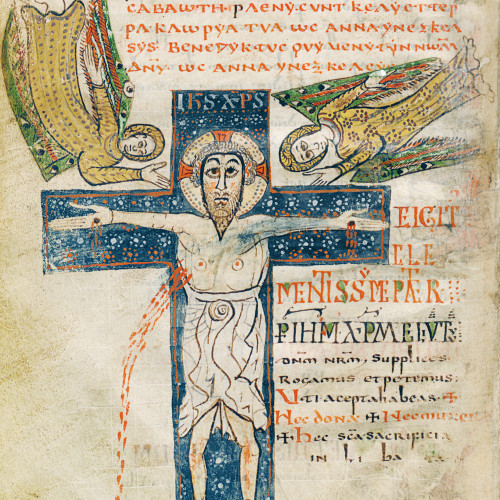 CABAωTH PΛENY CUNT KEΛY ETTEP
PA KΛωPYA TUA ωC ANNA YNEZKEΛ
SYS BENEDYKTUC QUY UENYT YN NωM
DNY ωC ANNA YNEZKEΛ
IHS XPS
EIGIT
ELE
MENTISSYME PATER
P IHM XPM
DNM NRM, SUPPLICES
Rogamus et petemus:
Uti acepta habeas +
Hec dona + Hec mune
+ Hec sca sacrificia
in li ba